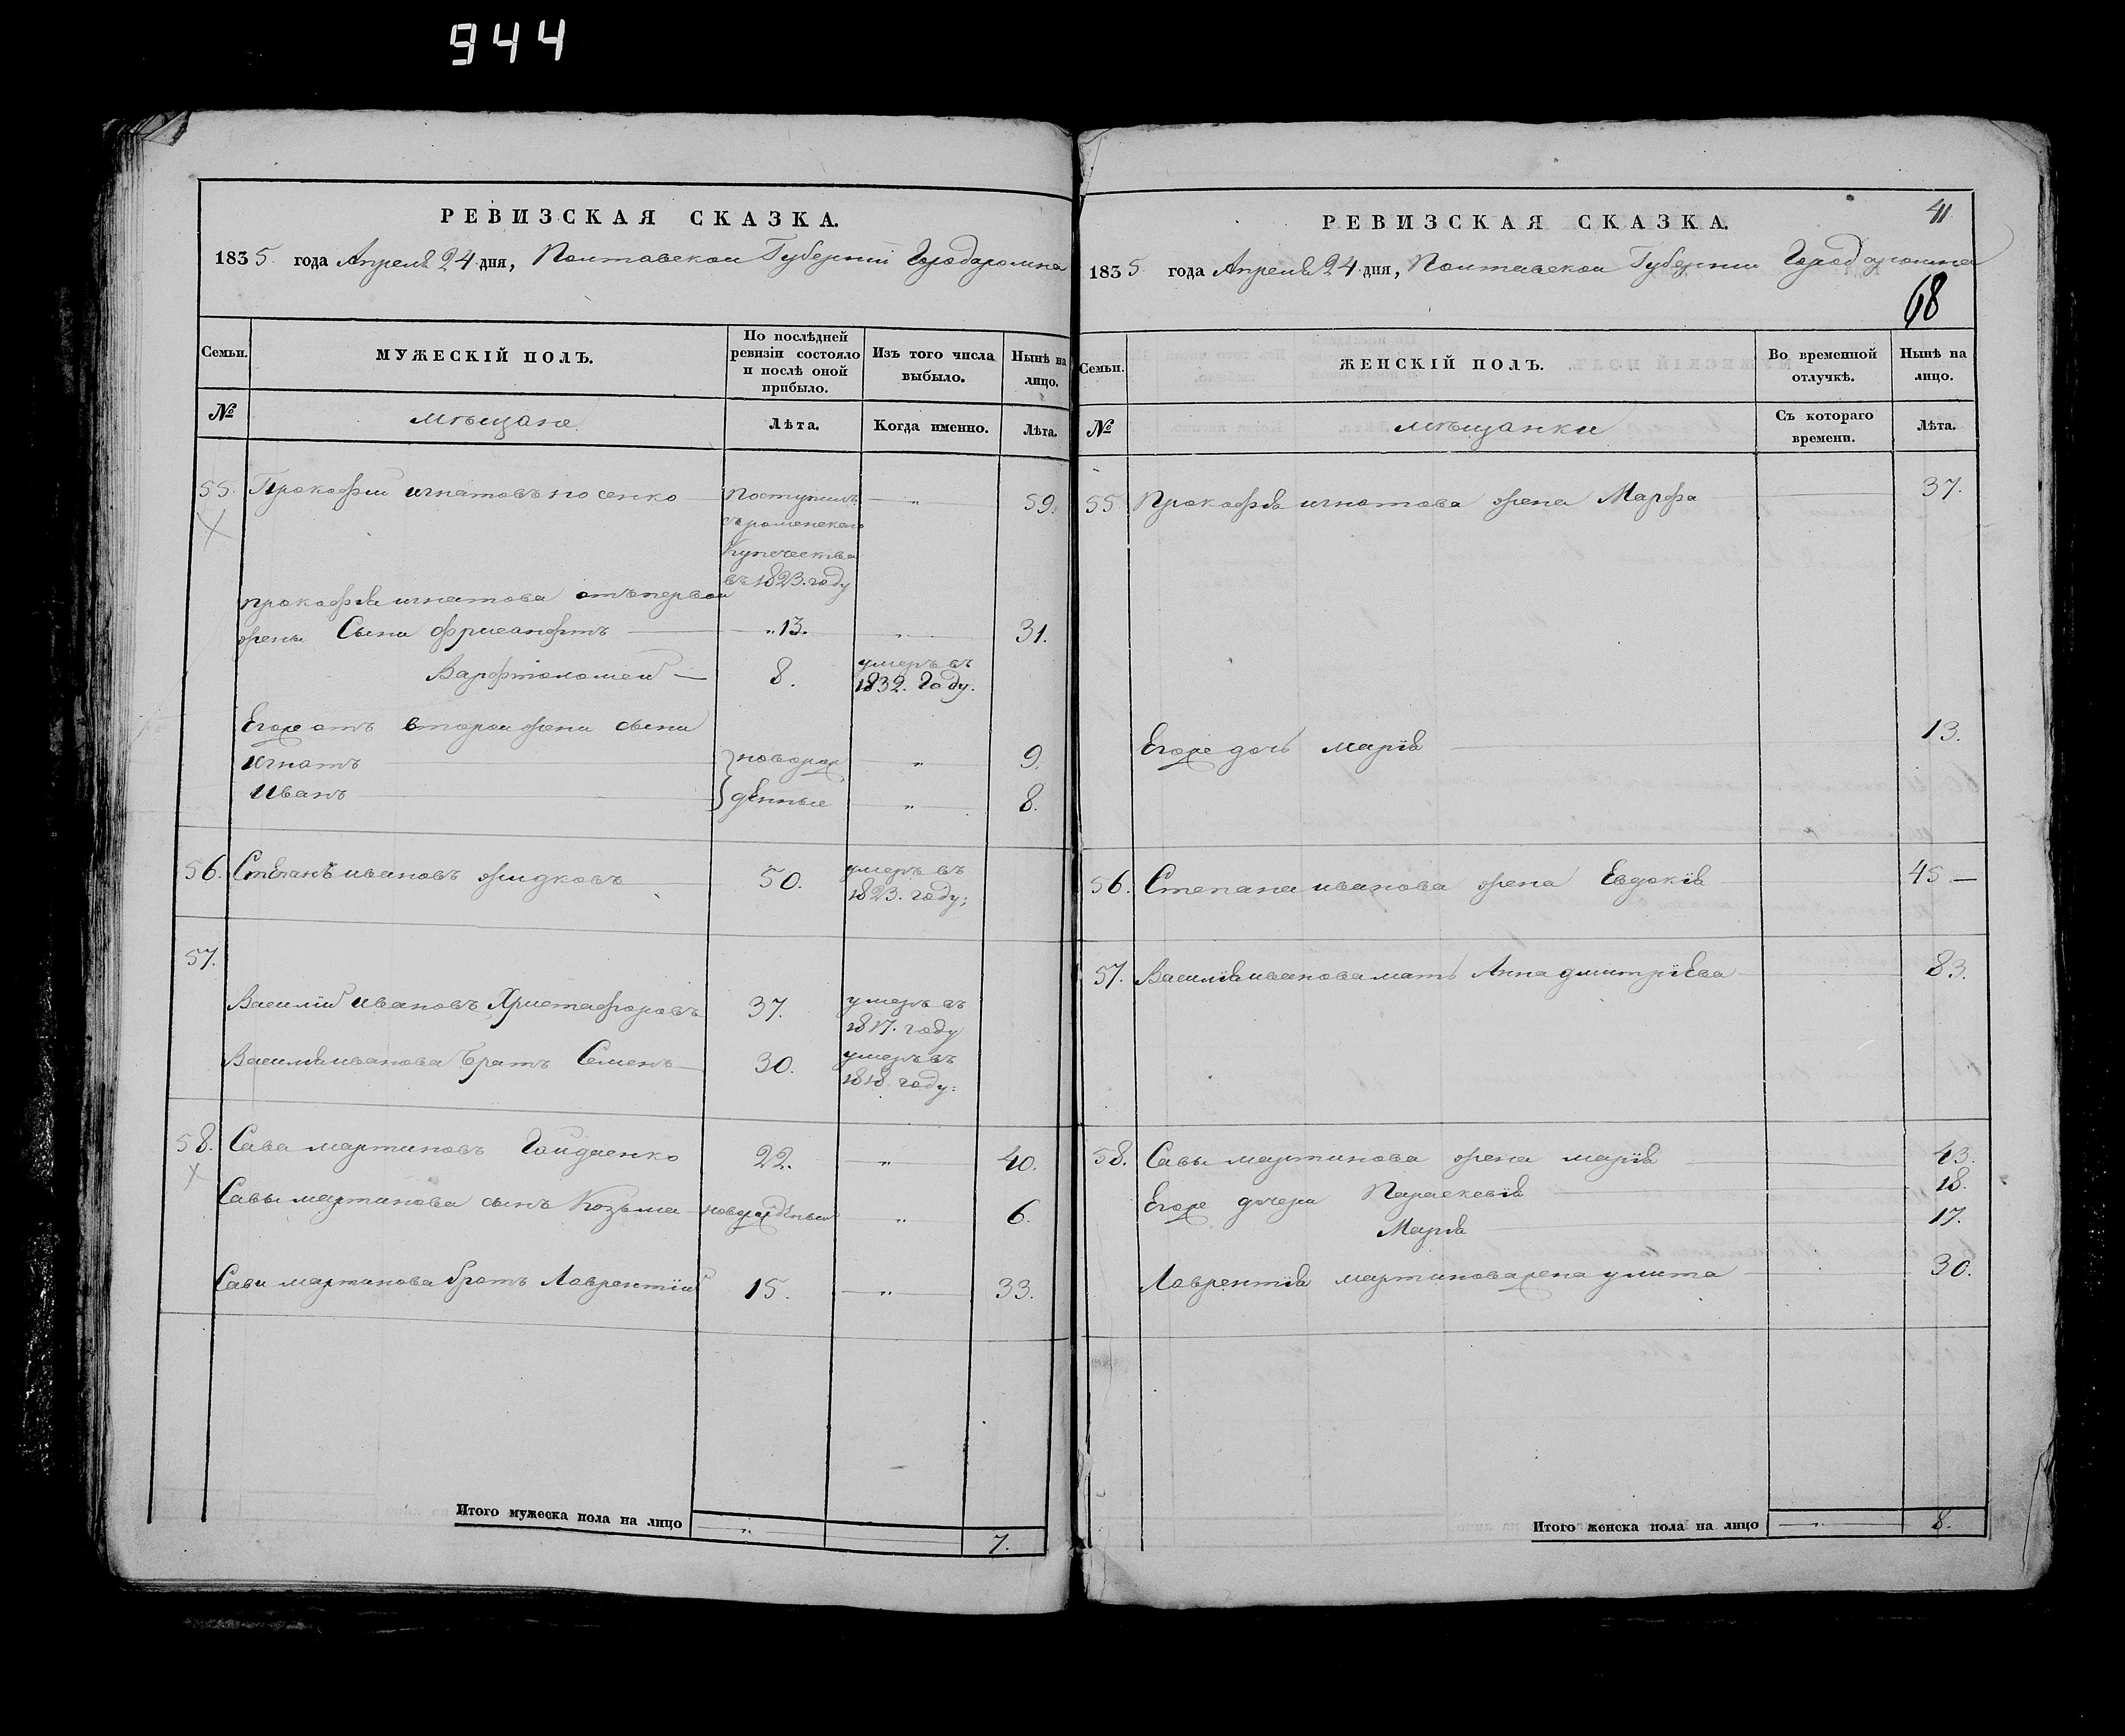 944
РЕВИЗСКАЯ СКАЗКА.
1835. года Апреля 24 дня, Полтавской Губернии Города ромна
Семьи.
МУЖЕСКІЙ ПОЛЪ.
По послѣдней ревизіи состояло и послѣ оной прибыло.
Изъ того числа выбыло.
Нынѣ на лицо.
№
мѣщане
Лѣта.
Когда именно.
Лѣта.
55. Прокофий игнатовъ носенко поступилъ „ 59.
съроменскаго
купечества
въ 1823. году
прокофия игнатова отъ первой
жены Сыни фрисанфтъ „13. „ 31.
Варфтоломей 8. умеръ въ
1832. Году.
Егоже отъ второй жени сыни
игнатъ новорож „ 9.
иванъ денные „ 8.
56. Степанъ ивановъ жидковъ 50. умеръ въ
1823. году;
57.
Василий ивановъ Христафоровъ 37. умеръ въ
1817. году
Василия иванова братъ Семенъ 30. умеръ въ
1818. году:
58. Сава мартиновъ Гайдаенко 22. „ 40.
Савы мартинова сынъ Козьма новорожденый „ 6.
Сави мартинова братъ Лаврентий 15. „ 33.
Итого мужеска пола на лицо „ 7.
41
РЕВИЗСКАЯ СКАЗКА.
1835. года Апреля 24 дня, Полтавской Губернии Города ромна
68
Семьи.
ЖЕНСКІЙ ПОЛЪ.
Во временной отлучкѣ.
Нынѣ на лицо.
№
мѣщанки
Съ котораго времени.
Лѣта.
55. Прокофия игнатова жена Марфа 37.
Егоже дочь мария 13.
56. Степана иванова жена Евдокия 45
57. Василия иванова мать Анна дмитриева 83.
58. Савы мартинова жена мария 43.
Егоже дочери Параскевия 18.
Мария 17.
Лаврентия мартинова жена улита 30.
Итого женска пола на лицо „ 8.